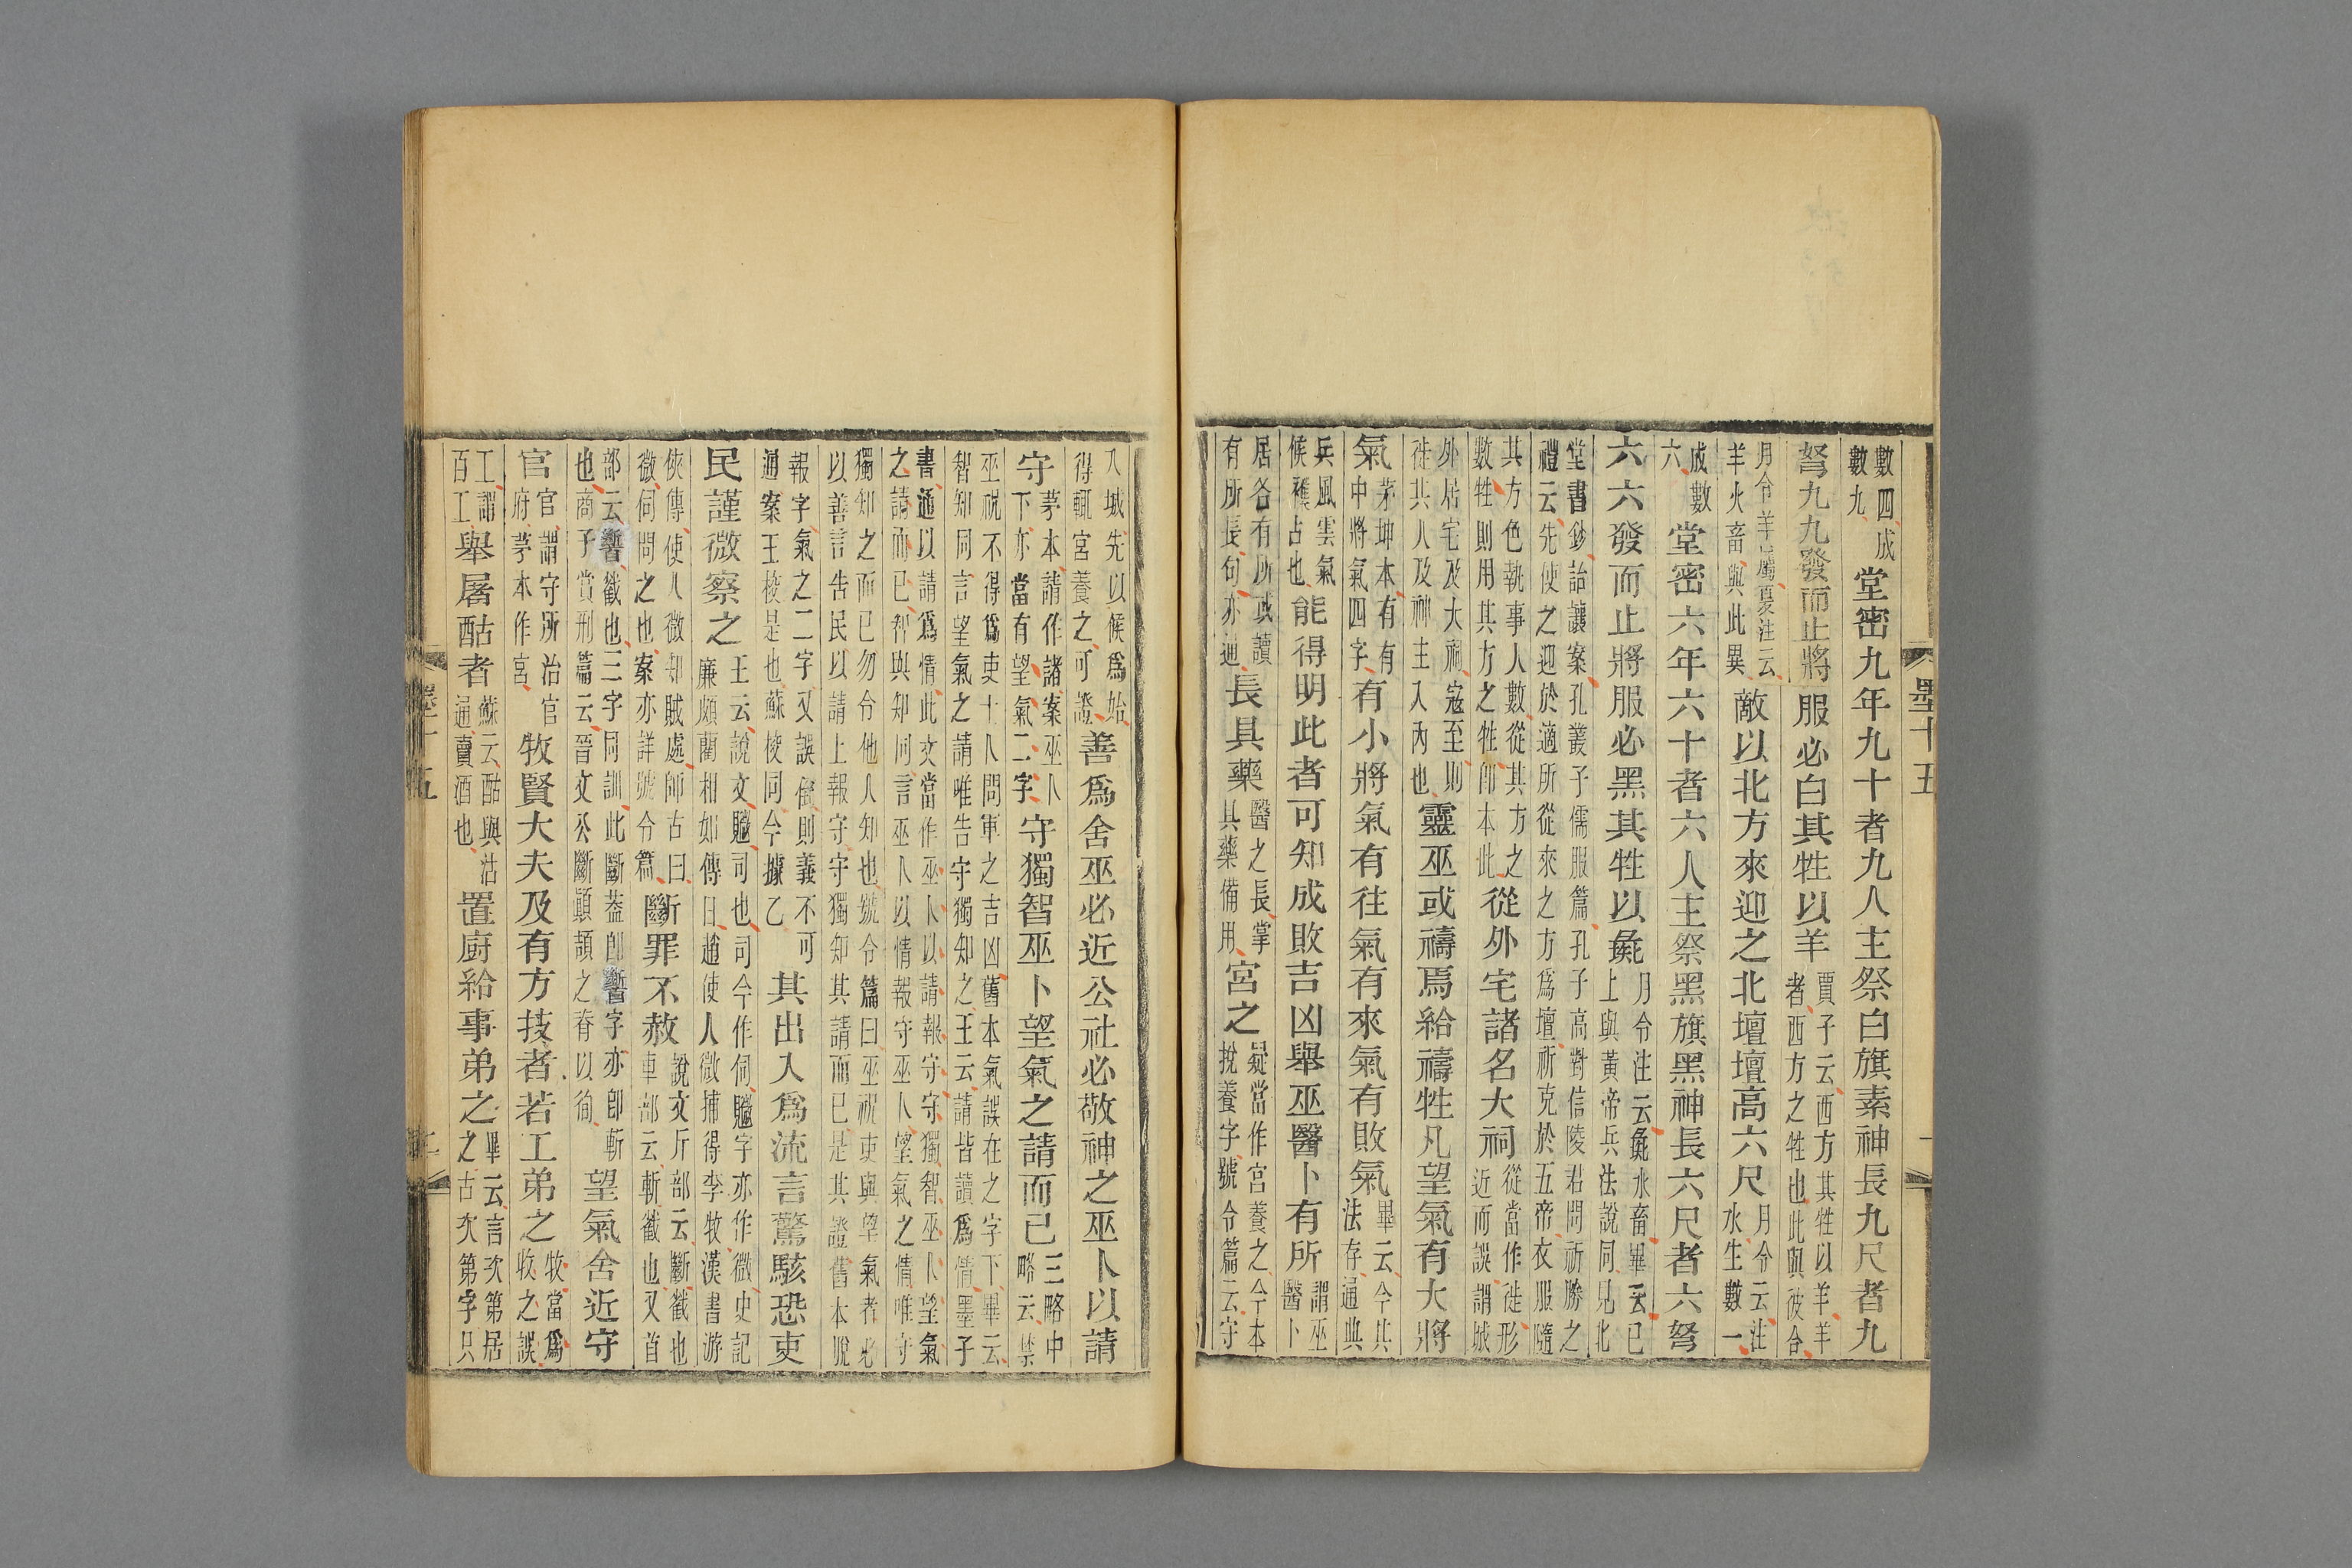 數四成數九堂密九年九十者九人主祭白旗素神長九尺者九
弩九九發而止將服必白其牲以羊賈子云西方其牲以羊羊者西方之牲也此與彼合
月令羊屬夏注云羊火畜與此異敵以北方來迎之北壇壇高六尺月令云注水生數一
成數六堂密六年六十者六人主祭黑旗黑神長六尺者六弩
六六發而止將服必黑其牲以彘月令注云彘水畜畢云已上與黃帝兵法說同見北
堂書鈔詒讓案孔叢子儒服篇孔子高對信陵君問祈勝之禮云先使之迎於適所從來之方爲壇祈克於五帝衣服隨
其方色執事人數從其方之數牲則用其方之牲卽本此從外宅諸名大祠從當作徙形近而誤謂城
外居宅及大祠寇至則徙其人及神主入內也靈巫或禱焉給禱牲凡望氣有大將
氣茅坤本有有中將氣四字有小將氣有往氣有來氣有敗氣畢云今其法存通典
兵風雲氣候襍占也能得明此者可知成敗吉凶舉巫醫卜有所謂巫醫卜
居各有所或讀有所長句亦通長具藥醫之長掌具藥備用宮之疑當作宮養之今本挩養字號令篇云守
入城先以候爲始得輒宮養之可證善爲舍巫必近公社必敬神之巫卜以請
守茅本請作諸案巫卜下亦當有望氣二字守獨智巫卜望氣之請而已三略中略云禁
巫祝不得爲吏士卜問軍之吉凶舊本氣誤在之字下畢云智知同言望氣之請唯告守獨知之王云請皆讀爲情墨子
書通以請爲情此文當作巫卜以請報守守獨智巫卜望氣之請而已智與知同言巫卜以情報守巫卜望氣之情唯守
獨知之而已勿令他人知也號令篇曰巫祝吏與望氣者必以善言告民以請上報守守獨知其請而已是其證舊本脫
報字氣之二字又誤倒則義不可通案王校是也蘇校同今據乙其出入爲流言驚駭恐吏
民謹微察之王云說文覹司也司今作伺覹字亦作微史記廉頗藺相如傳曰趙使人微捕得李牧漢書游
俠傳使人微知賊處師古曰微伺問之也案亦詳號令篇斷罪不赦說文斤部云斷截也車部云斬截也又首
部云𩠹截也三字同訓此斷蓋卽𩠹字亦卽斬也商子賞刑篇云晉文公斷顚頡之脊以徇望氣舍近守
官官謂守所治官府茅本作宮牧賢大夫及有方技者若工弟之牧當爲收之誤
工謂百工舉屠酤者蘇云酤與沽通賣酒也置廚給事弟之畢云言次第居之古次第字只
墨十五
墨十五